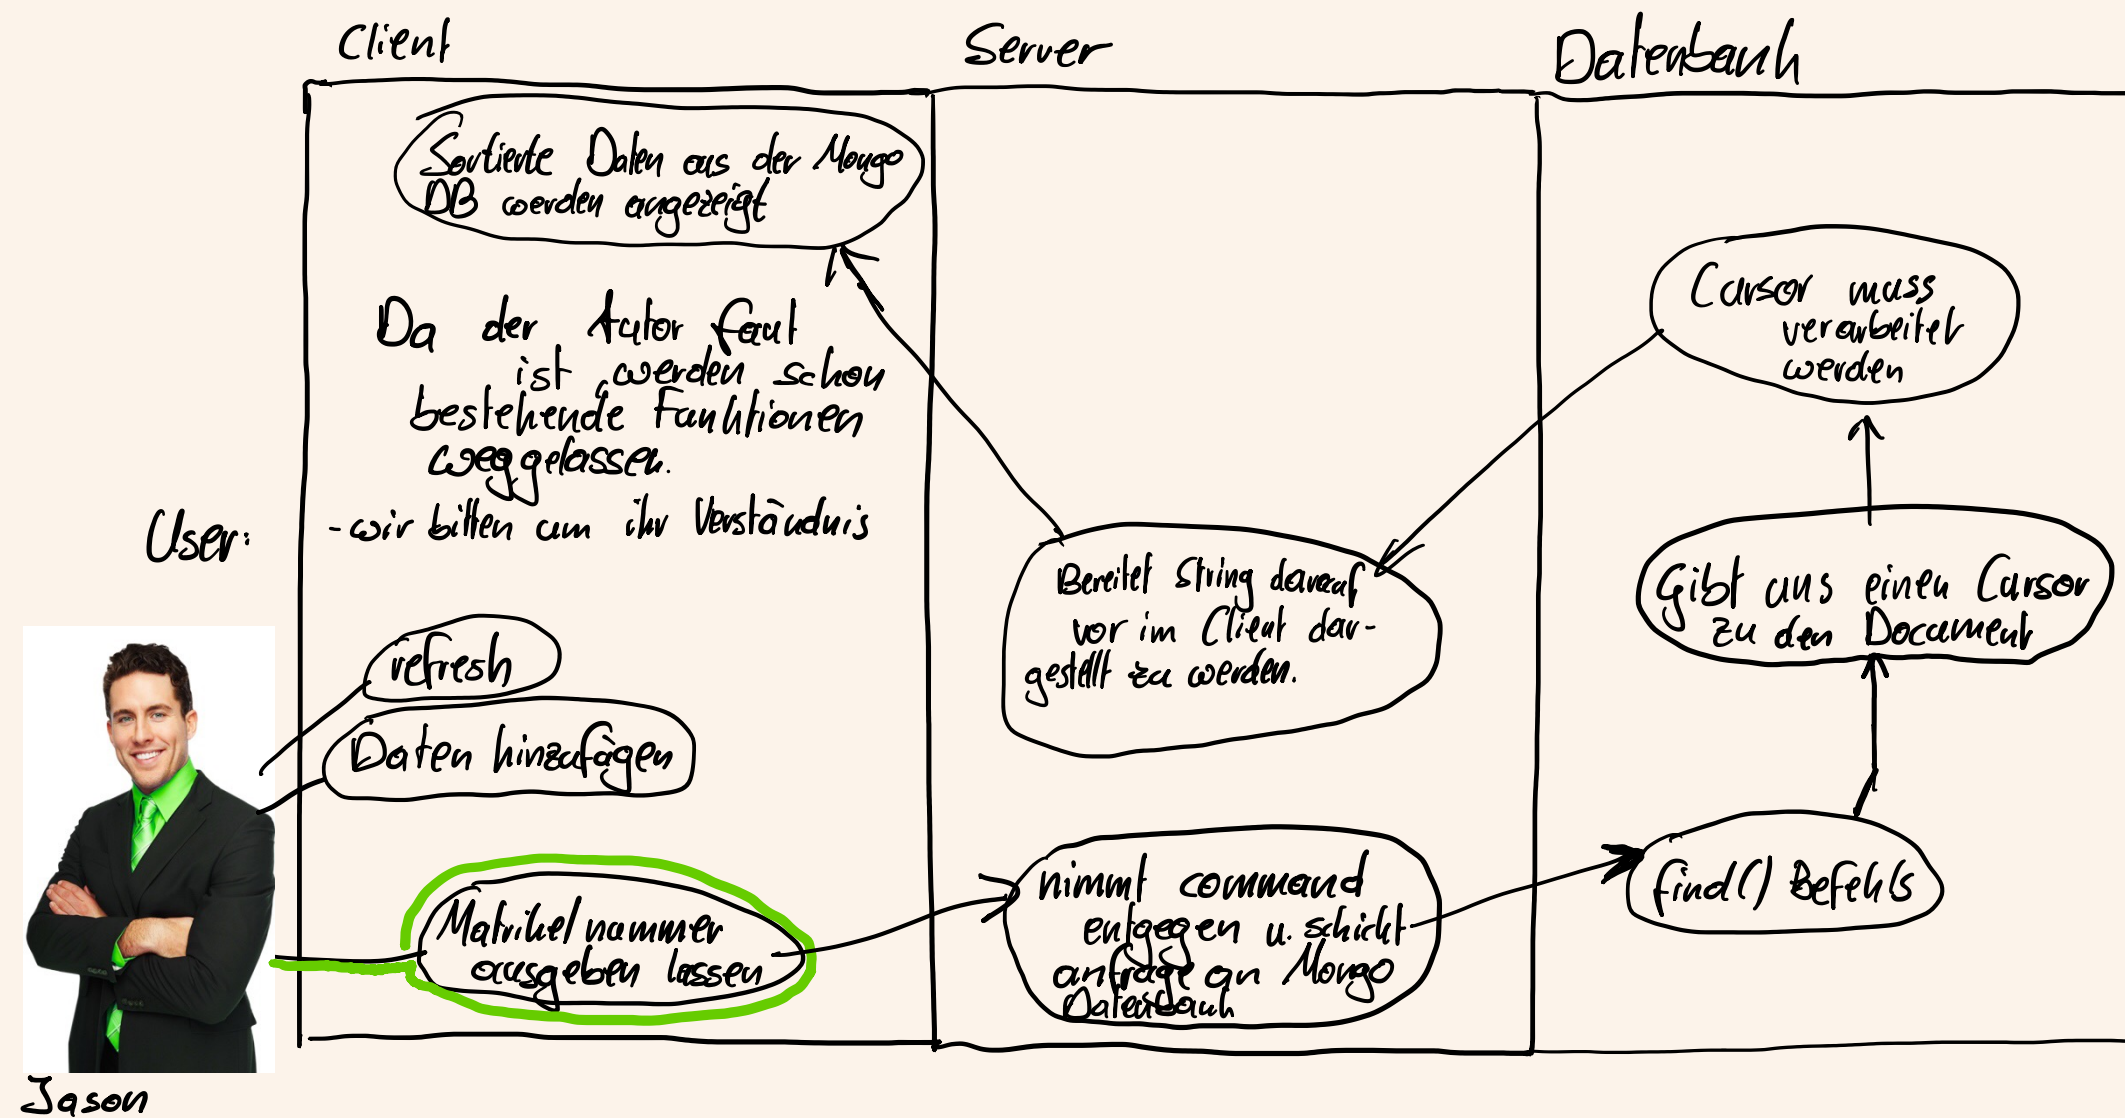 Client
Server
Datenbank
Sortierte Daten aus der Mongo
DB werden angezeigt
Da der Autor faul
ist, werden schon
bestehende Funktionen
weggelassen.
- wir bitten um ihr Verständnis
User:
refresh
Daten hinzufügen
Matrikelnummer
ausgeben lassen
Jason
Bereitet String darauf
vor im Client dar-
gestellt zu werden.
nimmt command
entgegen u. schickt
anfrage an Mongo
Datenbank
Cursor muss
verarbeitet
werden
Gibt uns einen Cursor
zu den Document
find() Befehls